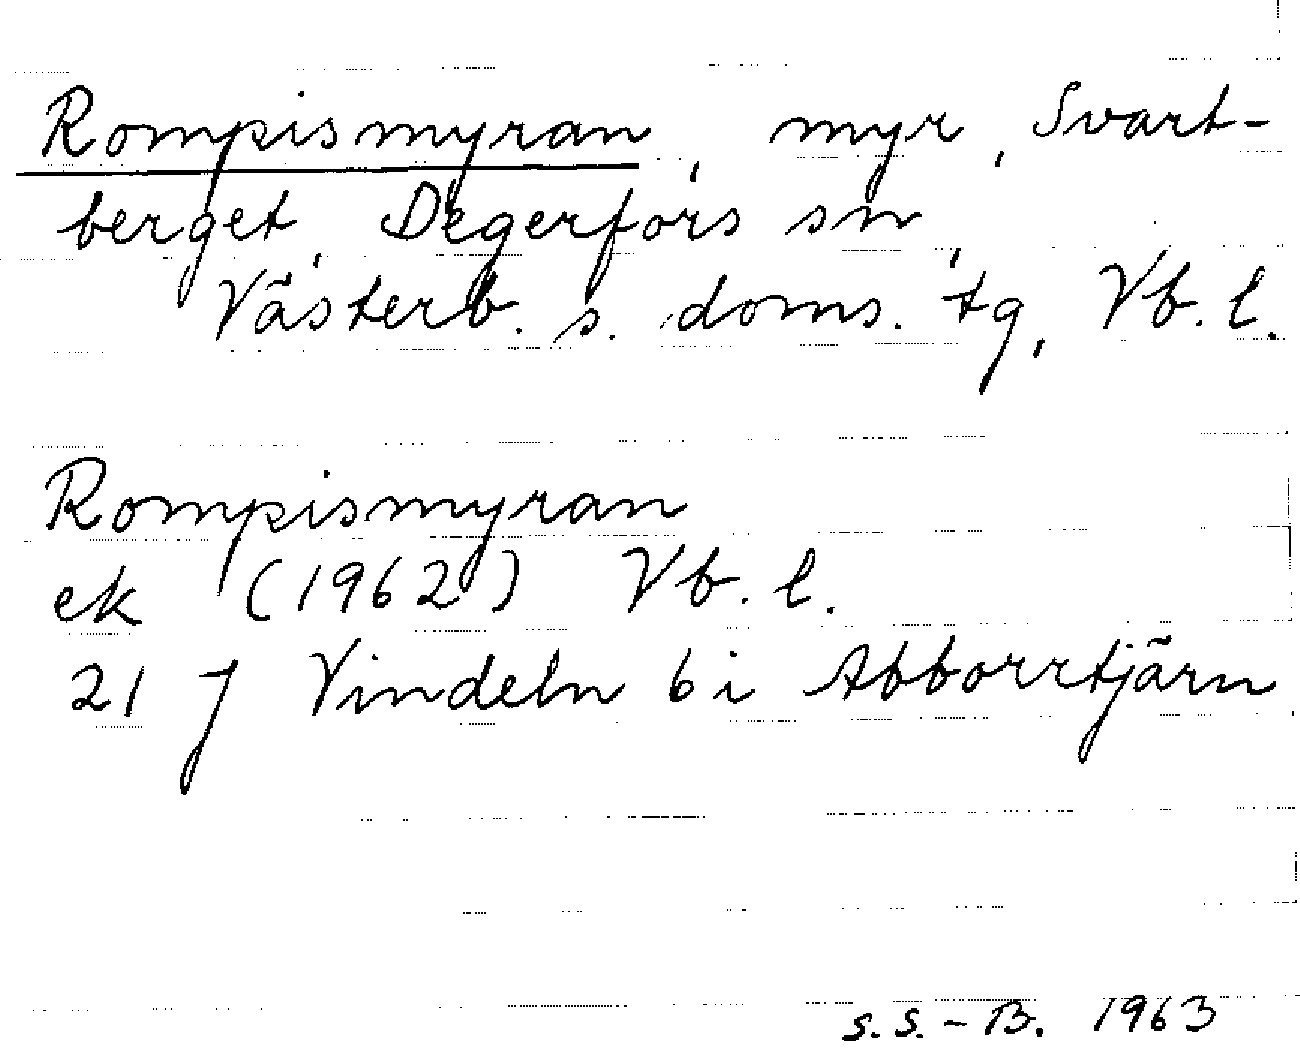 Rompismyran, myr, Svart-
berget, Degerfors sn,
Västerb. s. doms. tg, Vb. l.
Rompismyran
ek (1962) Vb. l.
21 J Vindeln 6 i Abborrtjärn
S. S. - B. 1963